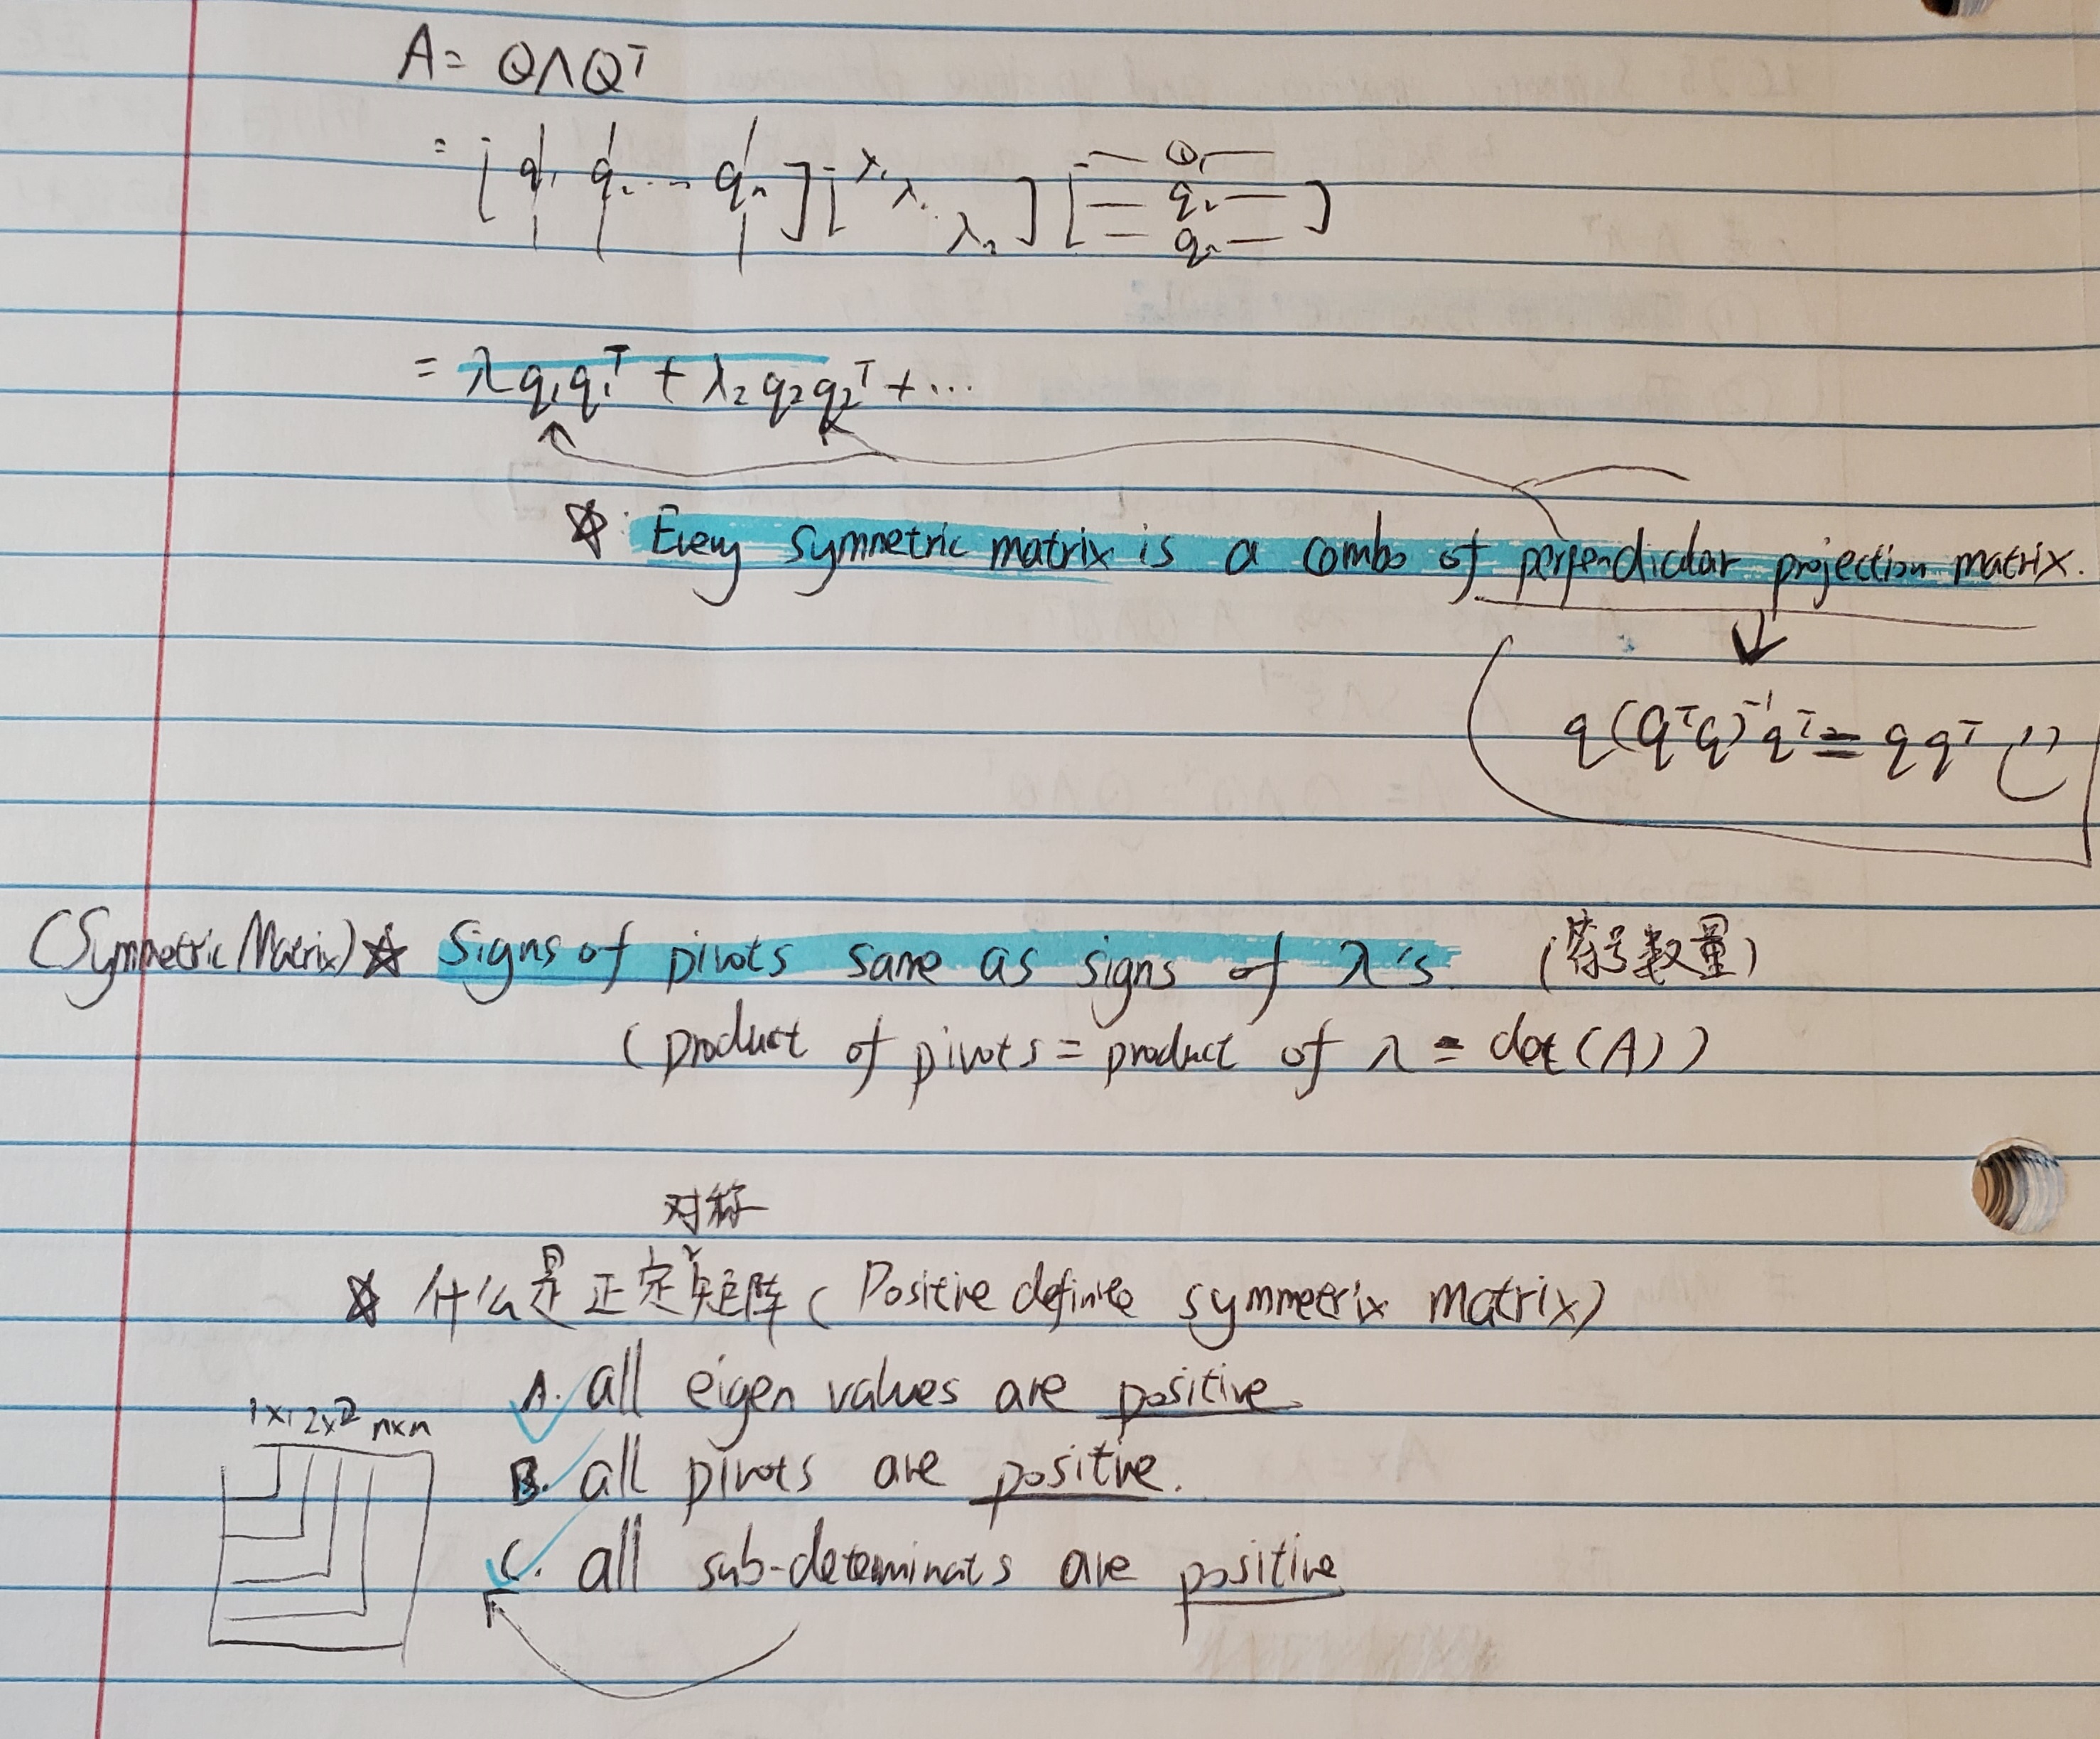 A = QΛQᵀ
= [ q₁ q₂ ... qₙ ] [ λ₁ λ₂ . λₙ ] [ — q₁ — — q₂ — — qₙ — ]
= λq₁q₁ᵀ + λ₂q₂q₂ᵀ + ...
☆: Every symmetric matrix is a combo of perpendicular projection matrix.
q(qᵀq)⁻¹qᵀ = qqᵀ
(Symmetric Matrix) ☆ Signs of pivots same as signs of λ's. (符号数量)
(product of pivots = product of λ = det(A))
对称
☆ 什么是正定ˇ矩阵 (Positive definite symmetrix matrix)
A. all eigen values are positive.
1x1 2x2 nxn
B. all pivots are positive.
C. all sub-determinats are positive